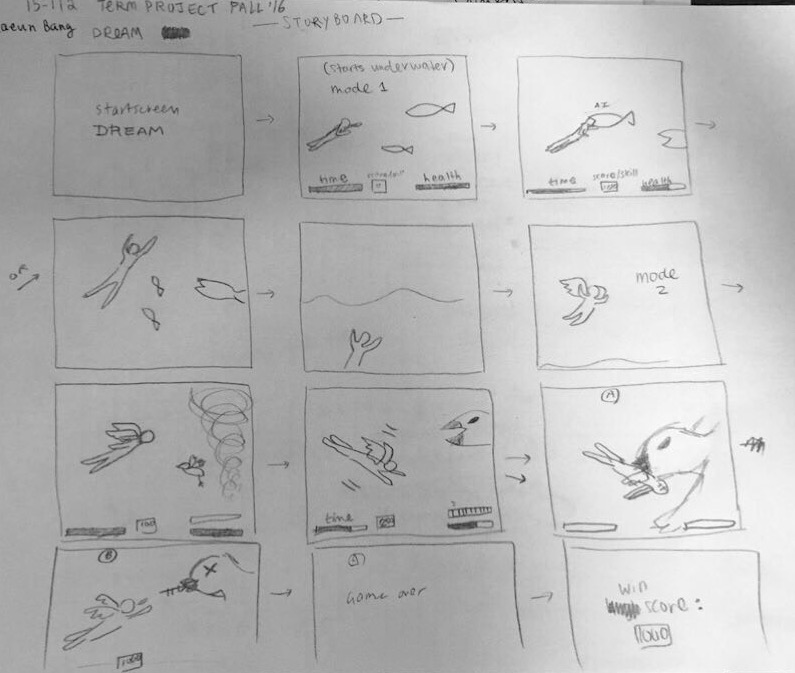 15-112 TERM PROJECT FALL '16
aeun Bang DREAM
— STORYBOARD —
startscreen
DREAM
(starts underwater)
mode 1
time
health
AI
time score/skill health
100
or
mode
2
100
time
?
A
B
100
A
Game over
win
score:
1000